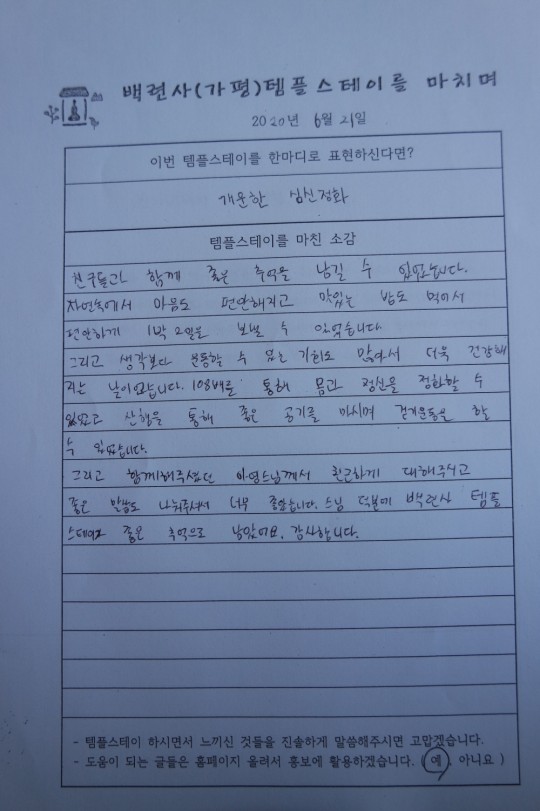 백련사(가평)템플스테이를 마치며
2020년 6월 21일
이번 템플스테이를 한마디로 표현하신다면?
개운한 심신정화
템플스테이를 마친 소감
친구들과 함께 좋은 추억을 남길 수 있었습니다.
자연속에서 마음도 편안해지고 맛있는 밥도 먹어서
편안하게 1박 2일을 보낼 수 있었습니다
그리고 생각보다 운동할 수 있는 기회도 많아서 더욱 건강해
지는 날이었습니다. 108배를 통해 몸과 정신을 정화할 수
있었고 산행을 통해 좋은 공기를 마시며 걷기운동을 할
수 있었습니다.
그리고 함께해주셨던 스님께서 친근하게 대해주시고
좋은 말씀도 나눠주셔서 너무 좋았습니다. 스님 덕분에 백련사 템플
스테이가 좋은 추억으로 남았어요. 감사합니다.
- 템플스테이 하시면서 느끼신 것들을 진솔하게 말씀해주시면 고맙겠습니다.
- 도움이 되는 글들은 홈페이지 올려서 홍보에 활용하겠습니다. ( 예 아니요 )